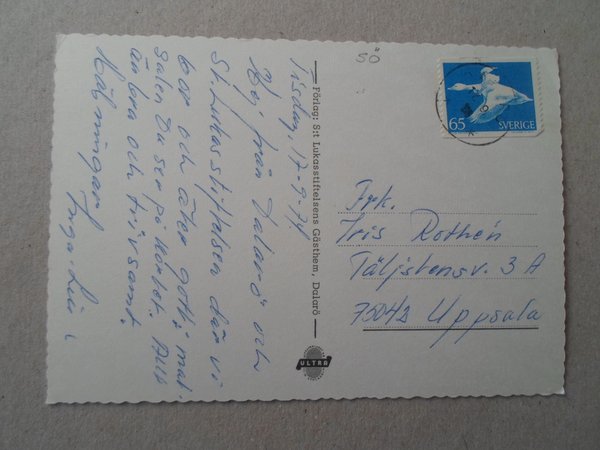 Tisdag, 17-9-74
Hej från Dalarö och
St. Lukasstiftelsen där vi
bor och äter gott i mat-
salen Du ser på kortet. Allt
är bra och trivsamt.
Hälsningar Inga-Lisa
Förlag: S:t Lukasstiftelsens Gästhem, Dalarö
ULTRA
SÖ
65 SVERIGE
Frk.
Iris Rothén
Täljstensv. 3 A
75043 Uppsala